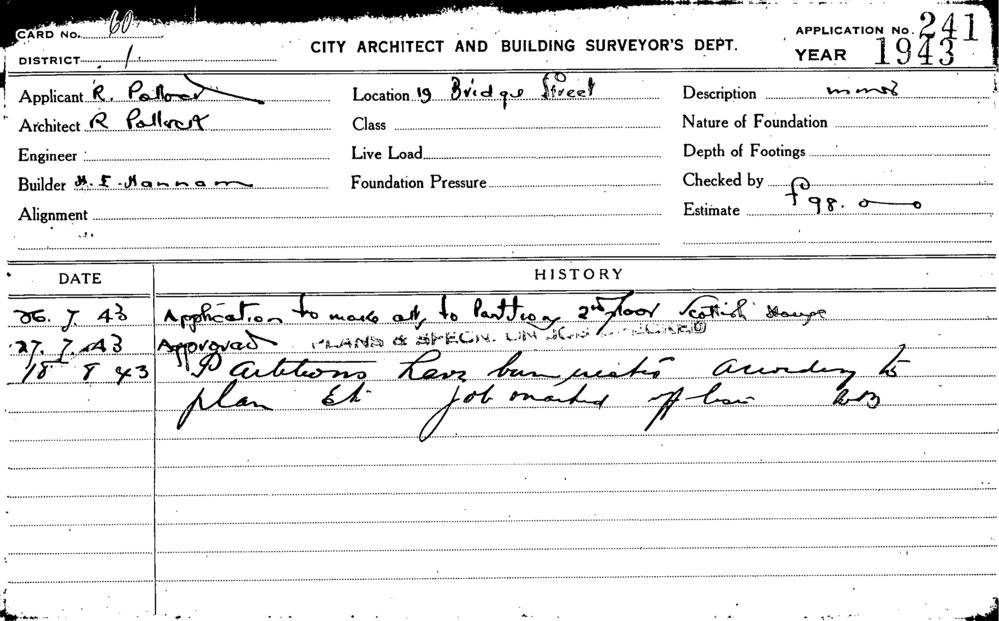 CARD No. 60
DISTRICT 1
CITY ARCHITECT AND BUILDING SURVEYOR'S DEPT.
APPLICATION No. 241
YEAR 1943
Applicant R. Pollock
Location 19 Bridge Street
Description minor
Architect R Pollock
Class
Nature of Foundation
Engineer
Live Load
Depth of Footings
Builder H. E. Hannam
Foundation Pressure
Checked by
Alignment
Estimate £98. 0 0
DATE
HISTORY
26. 7. 43 Application to make alts to Partitions 2nd floor Scottish House
27. 7. 43 Approved PLANS & SPECN. CHECKED
18 8 43 Partitions have been erected according to
plan Etc. job marked off